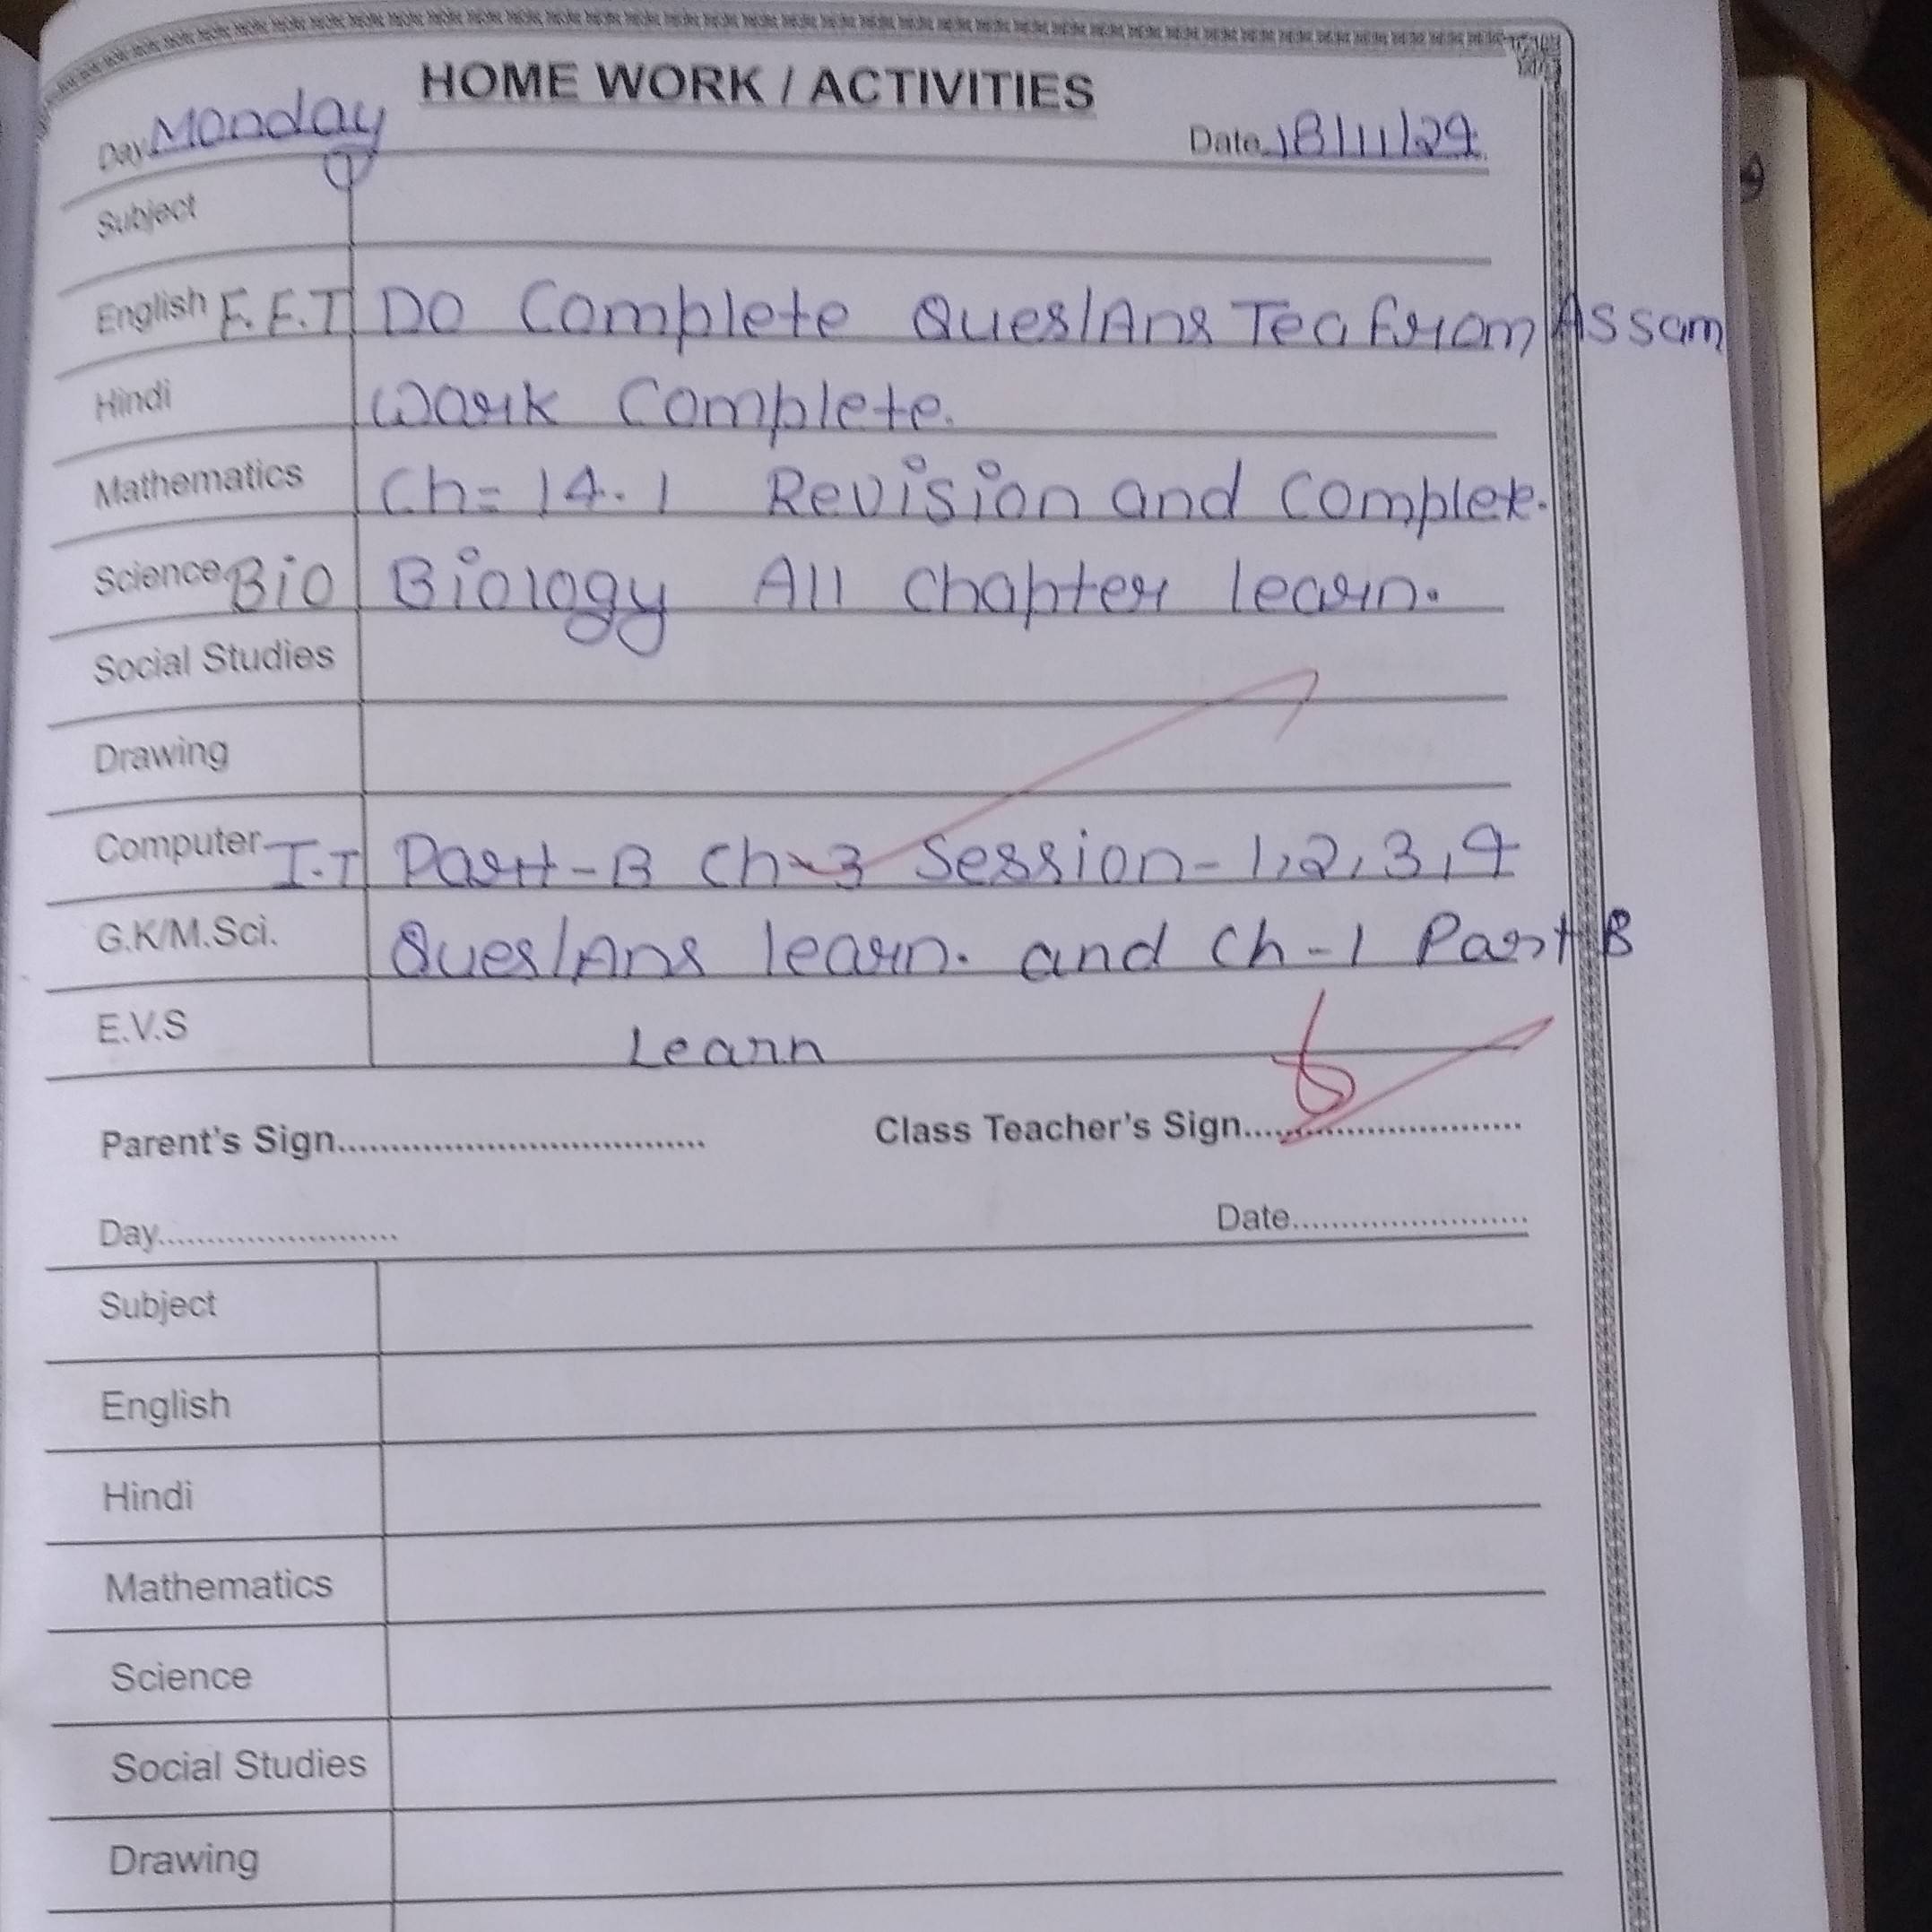 HOME WORK / ACTIVITIES
Day Monday Date 18/11/24
Subject
English F.F.T Do Complete Ques/Ans Tea from Assam
Hindi Work Complete.
Mathematics Ch= 14.1 Revision and complete.
Science Bio Biology All Chapter learn.
Social Studies
Drawing
Computer I.T Part-B Ch-3 Session-1,2,3,4
G.K/M.Sci. Ques/Ans learn. and Ch-1 Part B
E.V.S Learn
Parent's Sign................................... Class Teacher's Sign..........................
Day......................... Date.........................
Subject
English
Hindi
Mathematics
Science
Social Studies
Drawing